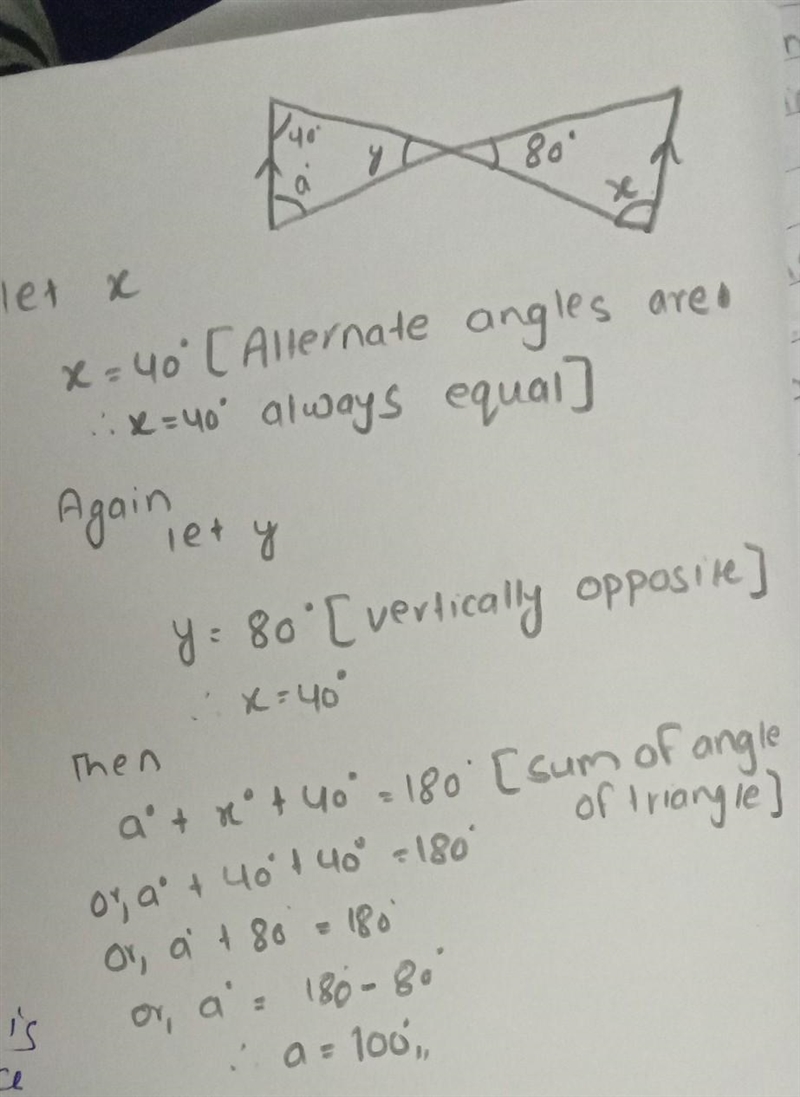 40°
a°
y
80°
x
let x
x = 40° [Alternate angles are
∴ x = 40° always equal]
Again
let y
y = 80° [vertically opposite]
∴ x = 40°
Then
a° + x° + 40° = 180° [sum of angle
of triangle]
or, a° + 40° + 40° = 180°
or, a° + 80° = 180°
or, a° = 180° - 80°
∴ a = 100°,,
is